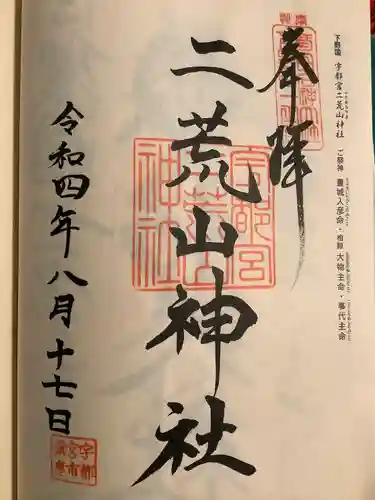 下野國 宇都宮二荒山神社 ご祭神 豊城入彦命・相殿 大物主命・事代主命
奉拝
二荒山神社
宇都宮二荒山神社
令和四年八月十七日